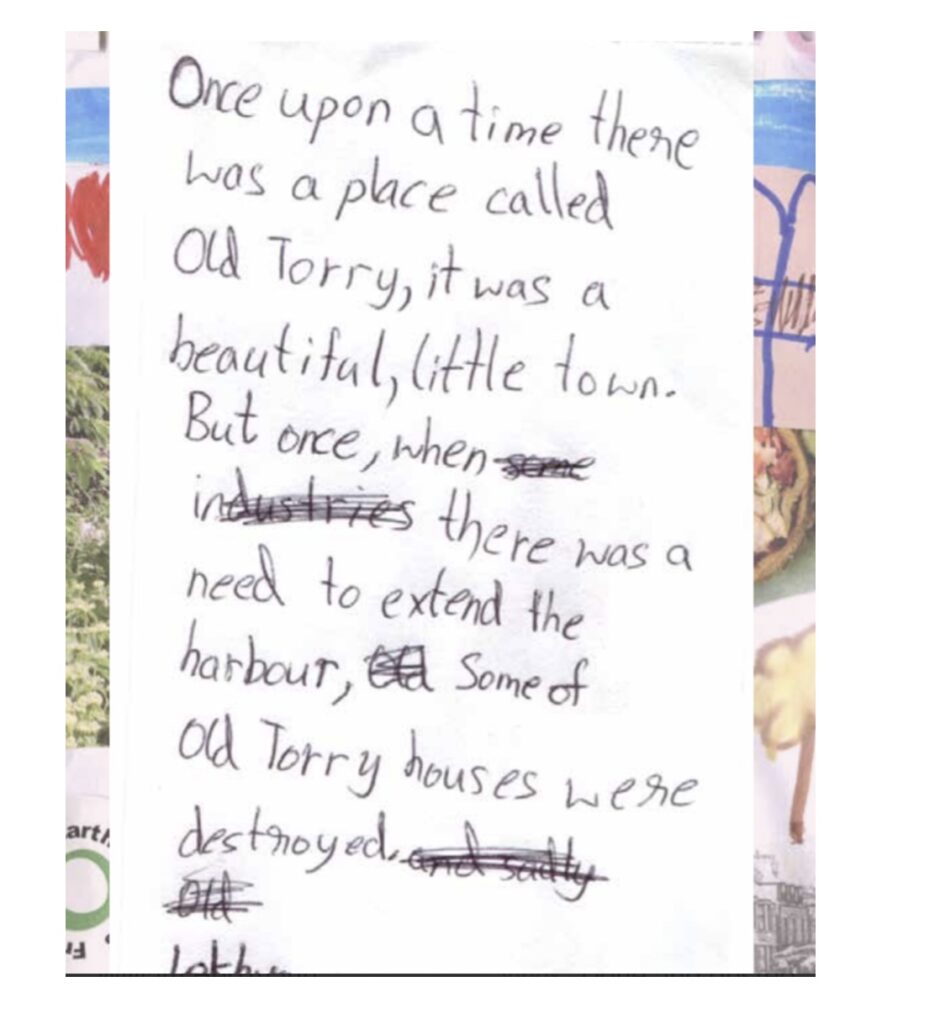 Once upon a time there
was a place called
Old Torry, it was a
beautiful, little town.
But once, when some
industries there was a
need to extend the
harbour, Old Some of
Old Torry houses were
destroyed. and sadly
Old